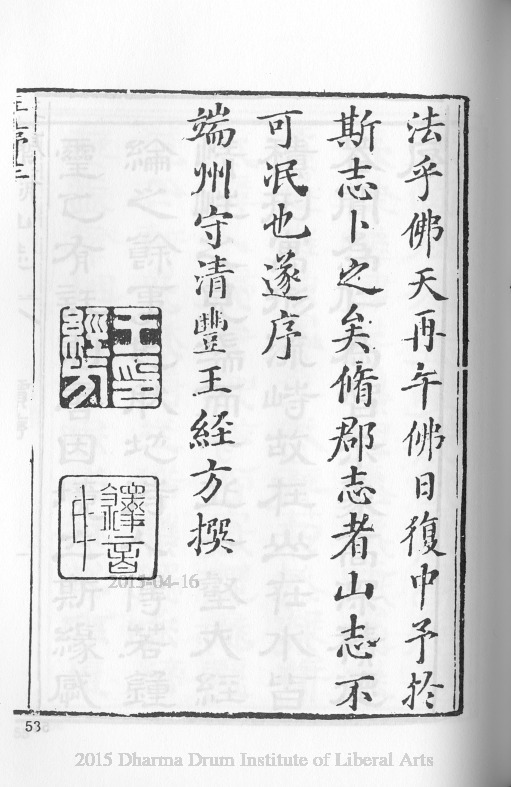 法乎佛天再午佛日復中予扵
斯志卜之矣脩郡志者山志不
可泯也遂序
端州守清豐王經方撰
王印
經方
2015-04-16
53
2015 Dharma Drum Institute of Liberal Arts